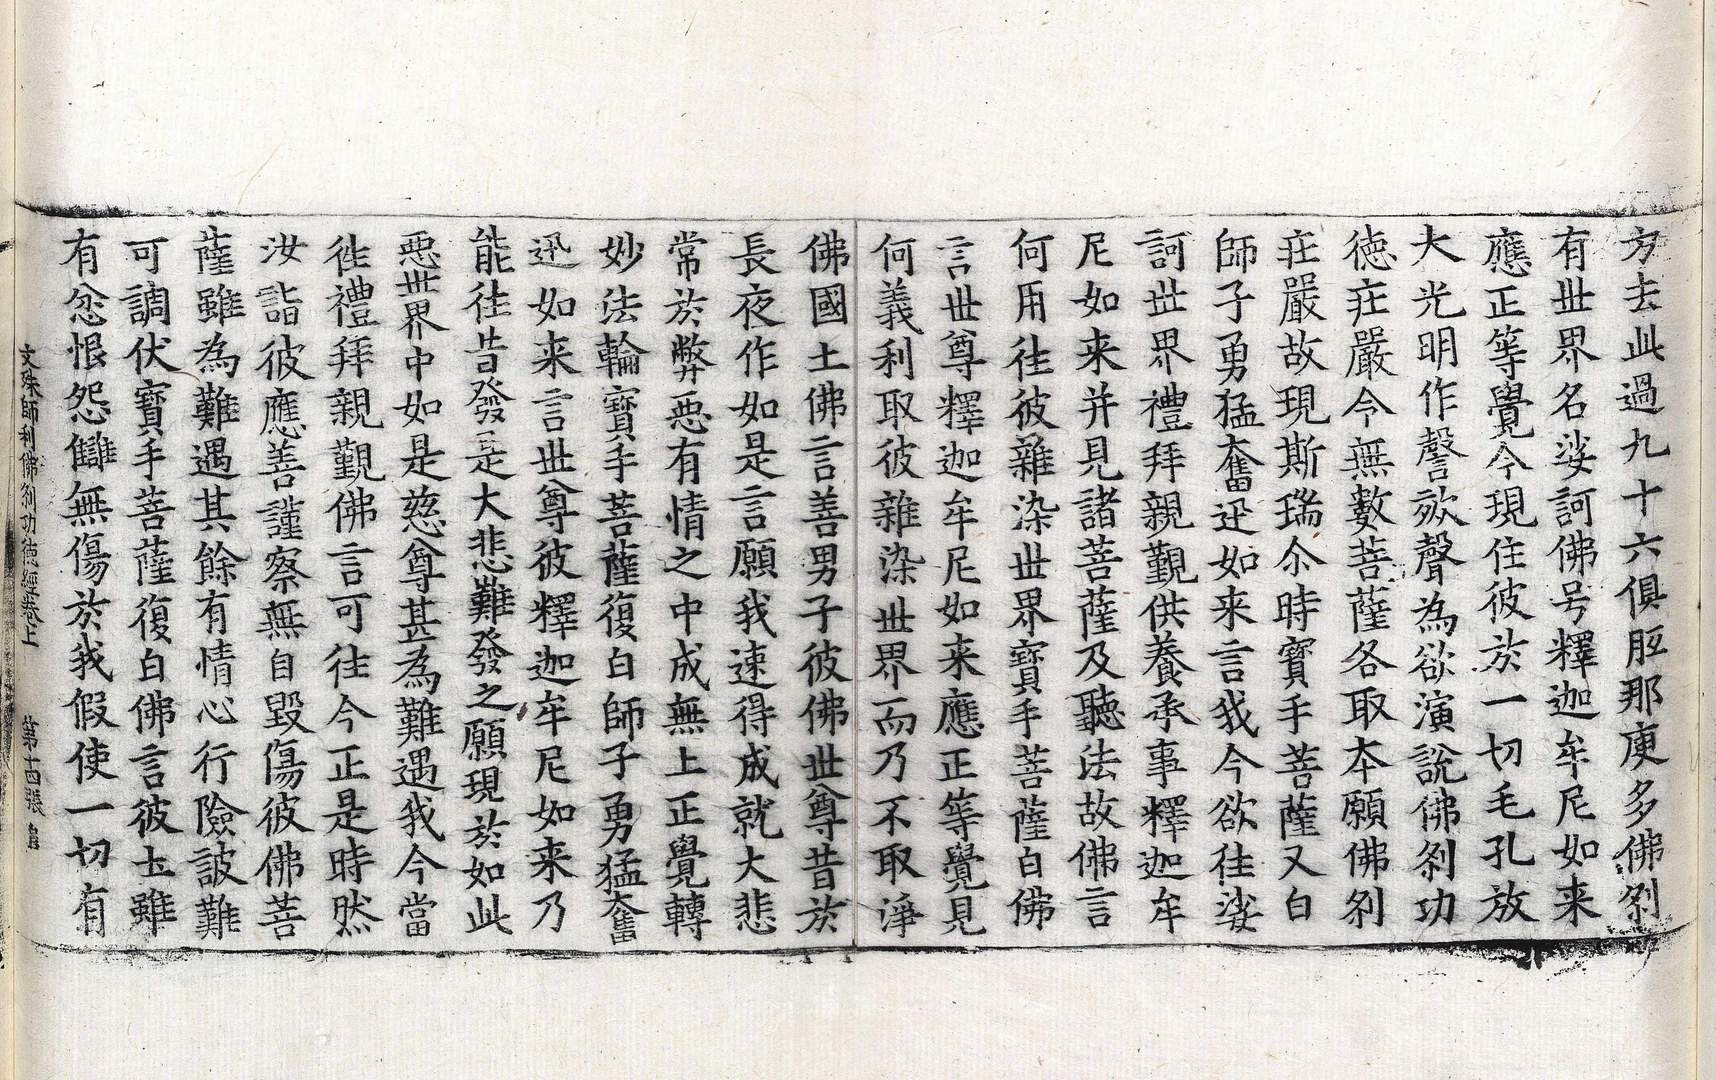 方去此過九十六俱胝那庾多佛刹
有世界名娑訶佛号釋迦牟尼如来
應正等覺今現住彼於一切毛孔放
大光明作謦欬聲為欲演說佛刹功
徳庄嚴令無數菩薩各取本願佛刹
庄嚴故現斯瑞尒時寶手菩薩又白
師子勇猛奮迅如来言我今欲往娑
訶世界禮拜親覲供養承事釋迦牟
尼如来并見諸菩薩及聽法故佛言
何用往彼雜染世界寶手菩薩白佛
言世尊釋迦牟尼如来應正等覺見
何義利取彼雜染世界而乃不取淨
佛國土佛言善男子彼佛世尊昔於
長夜作如是言願我速得成就大悲
常於弊惡有情之中成無上正覺轉
妙法輪寶手菩薩復白師子勇猛奮
迅如来言世尊彼釋迦牟尼如来乃
能往昔發是大悲難發之願現於如此
惡世界中如是慈尊甚為難遇我今當
往禮拜親覲佛言可往今正是時然
汝詣彼應善謹察無自毀傷彼佛菩
薩雖為難遇其餘有情心行險詖難
可調伏寶手菩薩復白佛言彼土雖
有忿恨怨讎無傷於我假使一切有
文殊師利佛刹功徳經卷上 第十四張